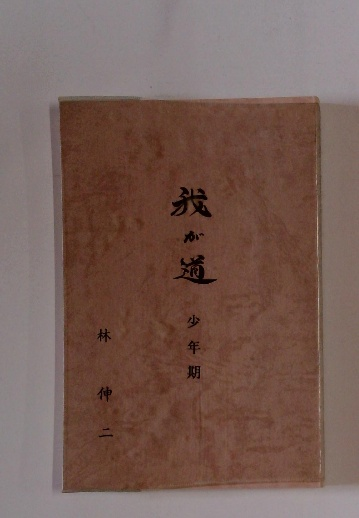 我が道
少年期
林伸二